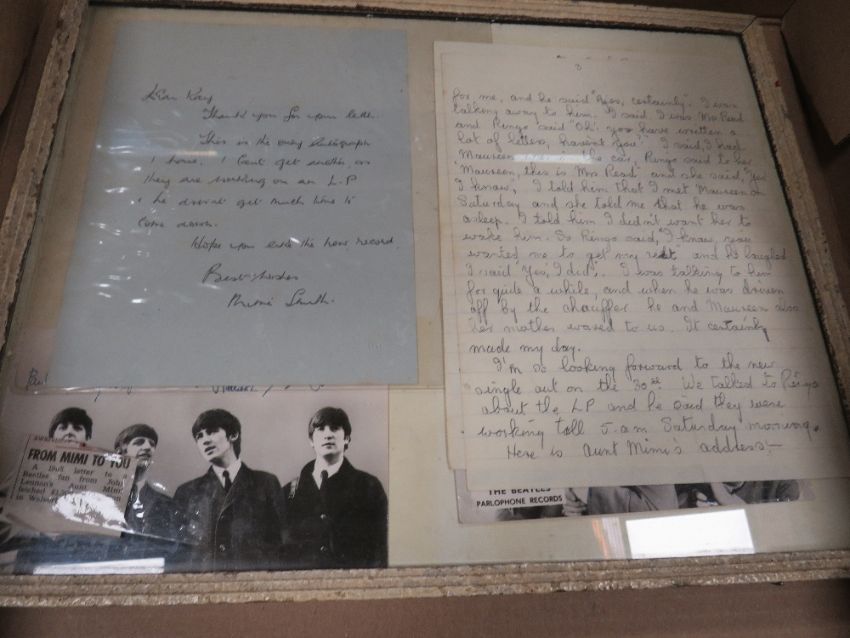 Dear Kay
Thank you for your letter.
This is the only autograph
I have. I cant get another, as
they are working on an L.P
& he doesnt get much time to
come down.
Hope you like the new record.
Best wishes
Mimi Smith.
3
for me, and he said "Yes, certainly". I was
talking away to him. I said, I was Mrs Read
and Ringo said "Oh! you have written a
lot of letters, haven't you". I said, I had
Maureen the car, Ringo said to her
"Maureen, this is Mrs Read" and she said, "Yes
I know, I told him that I met Maureen on
Saturday and she told me that he was
asleep. I told him I didn't want her to
wake him. So Ringo said, "I know, you
wanted me to get my rest" and he laughed
I said Yes, I did. I was talking to him
for quite a while, and when he was driven
off by the chauffer he and Maureen also
her mother waved to us. It certainly
made my day.
I'm so looking forward to the new
single out on the 30th. We talked to Ringo
about the LP and he said they were
working till 5-am Saturday morning.
Here is Aunt Mimi's address:—
FROM MIMI TO YOU
A 1968 letter to a
Beatles fan from John
Lennon's Aunt Mimi
fetched
in
THE BEATLES
PARLOPHONE RECORDS